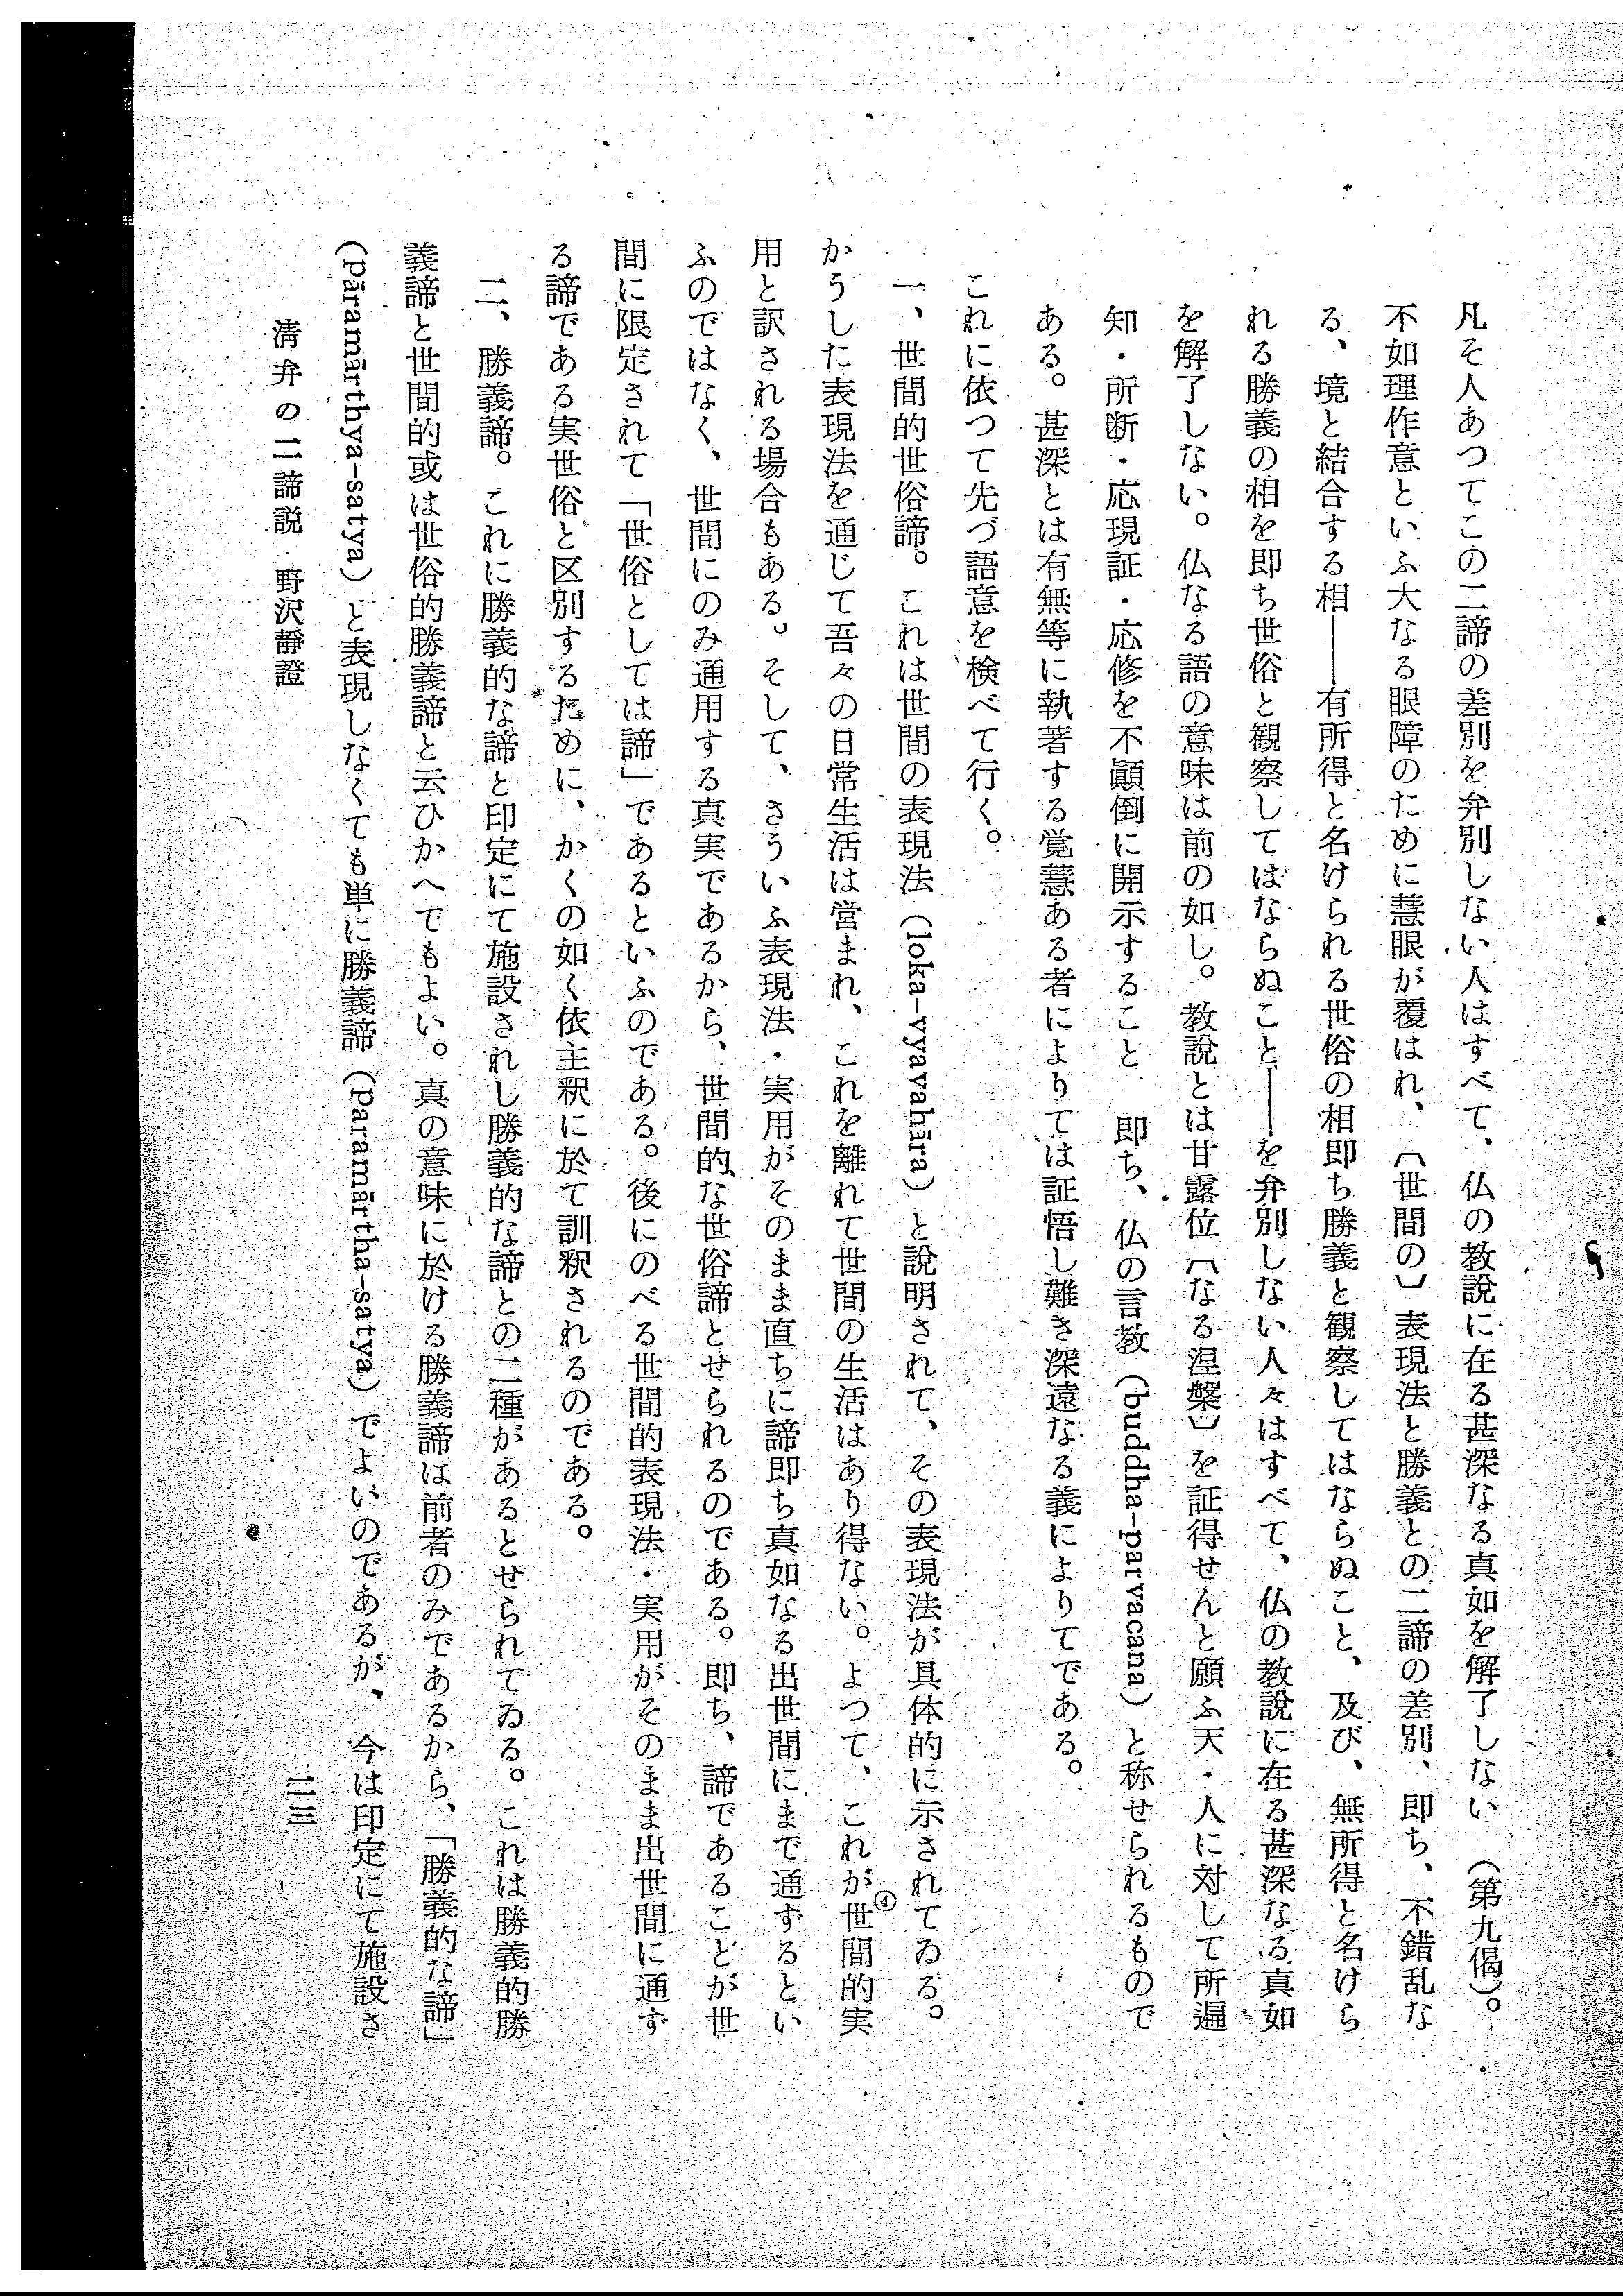 凡そ人あつてこの二諦の差別を弁別しない人はすべて、仏の教説に在る甚深なる真如を解了しない（第九偈）。
不如理作意といふ大なる眼障のために慧眼が覆はれ、〔世間の〕表現法と勝義との二諦の差別、即ち、不錯乱な
る、境と結合する相――有所得と名けられる世俗の相即ち勝義と観察してはならぬこと、及び、無所得と名けら
れる勝義の相を即ち世俗と観察してはならぬこと――を弁別しない人々はすべて、仏の教説に在る甚深なる真如
を解了しない。仏なる語の意味は前の如し。教説とは甘露位〔なる涅槃〕を証得せんと願ふ天・人に対して所遍
知・所断・応現証・応修を不顚倒に開示すること 即ち、仏の言教（buddha-parvacana）と称せられるもので
ある。甚深とは有無等に執著する覚慧ある者によりては証悟し難き深遠なる義によりてである。
これに依つて先づ語意を検べて行く。
一、世間的世俗諦。これは世間の表現法（loka-vyavahāra）と説明されて、その表現法が具体的に示されてゐる。
かうした表現法を通じて吾々の日常生活は営まれ、これを離れて世間の生活はあり得ない。よつて、これが④世間的実
用と訳される場合もある。そして、さういふ表現法・実用がそのまま直ちに諦即ち真如なる出世間にまで通ずるとい
ふのではなく、世間にのみ通用する真実であるから、世間的な世俗諦とせられるのである。即ち、諦であることが世
間に限定されて「世俗としては諦」であるといふのである。後にのべる世間的表現法・実用がそのまま出世間に通ず
る諦である実世俗と区別するために、かくの如く依主釈に於て訓釈されるのである。
二、勝義諦。これに勝義的な諦と印定にて施設されし勝義的な諦との二種があるとせられてゐる。これは勝義的勝
義諦と世間的或は世俗的勝義諦と云ひかへでもよい。真の意味に於ける勝義諦は前者のみであるから、「勝義的な諦」
（pāramārthya-satya）と表現しなくても単に勝義諦（paramārtha-satya）でよいのであるが、今は印定にて施設さ
清弁の二諦説 野沢靜證
二三